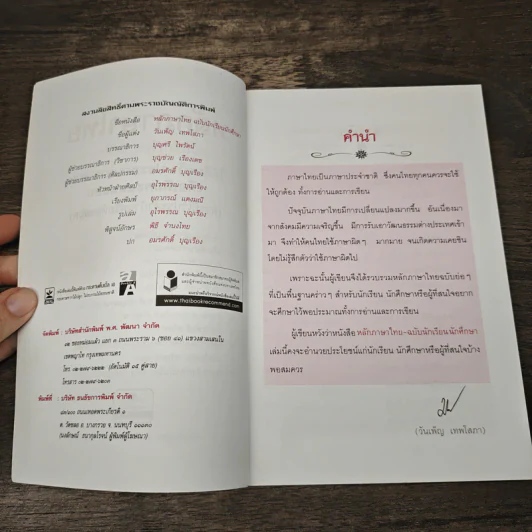 สงวนลิขสิทธิ์ตามพระราชบัญญัติการพิมพ์
ชื่อหนังสือ หลักภาษาไทย ฉบับนักเรียนนักศึกษา
ชื่อผู้แต่ง วันเพ็ญ เทพโสภา
บรรณาธิการ บุญศรี ไพรัตน์
ผู้ช่วยบรรณาธิการ (วิชาการ) บุญช่วย เรืองเดช
ผู้ช่วยบรรณาธิการ (ศิลปกรรม) อมรศักดิ์ บุญเรือง
หัวหน้าฝ่ายศิลป์ อุไรพรรณ บุญเรือง
เรียงพิมพ์ ยุภาภรณ์ แดงมณี
รูปเล่ม อุไรพรรณ บุญเรือง
พิสูจน์อักษร พิธี จำนงไทย
ปก อมรศักดิ์ บุญเรือง
www.thaibookrecommend.com
จัดพิมพ์ : บริษัทสำนักพิมพ์ พ.ศ. พัฒนา จำกัด
เขตพญาไท กรุงเทพมหานคร
พิมพ์ที่ : บริษัท ธนธัชการพิมพ์ จำกัด
คำนำ
ภาษาไทยเป็นภาษาประจำชาติ ซึ่งคนไทยทุกคนควรจะใช้
ให้ถูกต้อง ทั้งการอ่านและการเขียน
ปัจจุบันภาษาไทยมีการเปลี่ยนแปลงมากขึ้น อันเนื่องมา
จากสังคมมีความเจริญขึ้น มีการรับเอาวัฒนธรรมต่างประเทศเข้า
มา จึงทำให้คนไทยใช้ภาษาผิด ๆ มากมาย จนเกิดความเคยชิน
โดยไม่รู้สึกตัวว่าใช้ภาษาผิดไป
เพราะฉะนั้นผู้เขียนจึงได้รวบรวมหลักภาษาไทยฉบับย่อ ๆ
ที่เป็นพื้นฐานคร่าว ๆ สำหรับนักเรียน นักศึกษาหรือผู้ที่สนใจอยาก
จะศึกษาไว้พอประมาณทั้งการอ่านและการเขียน
ผู้เขียนหวังว่าหนังสือ หลักภาษาไทย-ฉบับนักเรียน นักศึกษา
เล่มนี้คงจะอำนวยประโยชน์แก่นักเรียน นักศึกษาหรือผู้ที่สนใจบ้าง
พอสมควร
(วันเพ็ญ เทพโสภา)